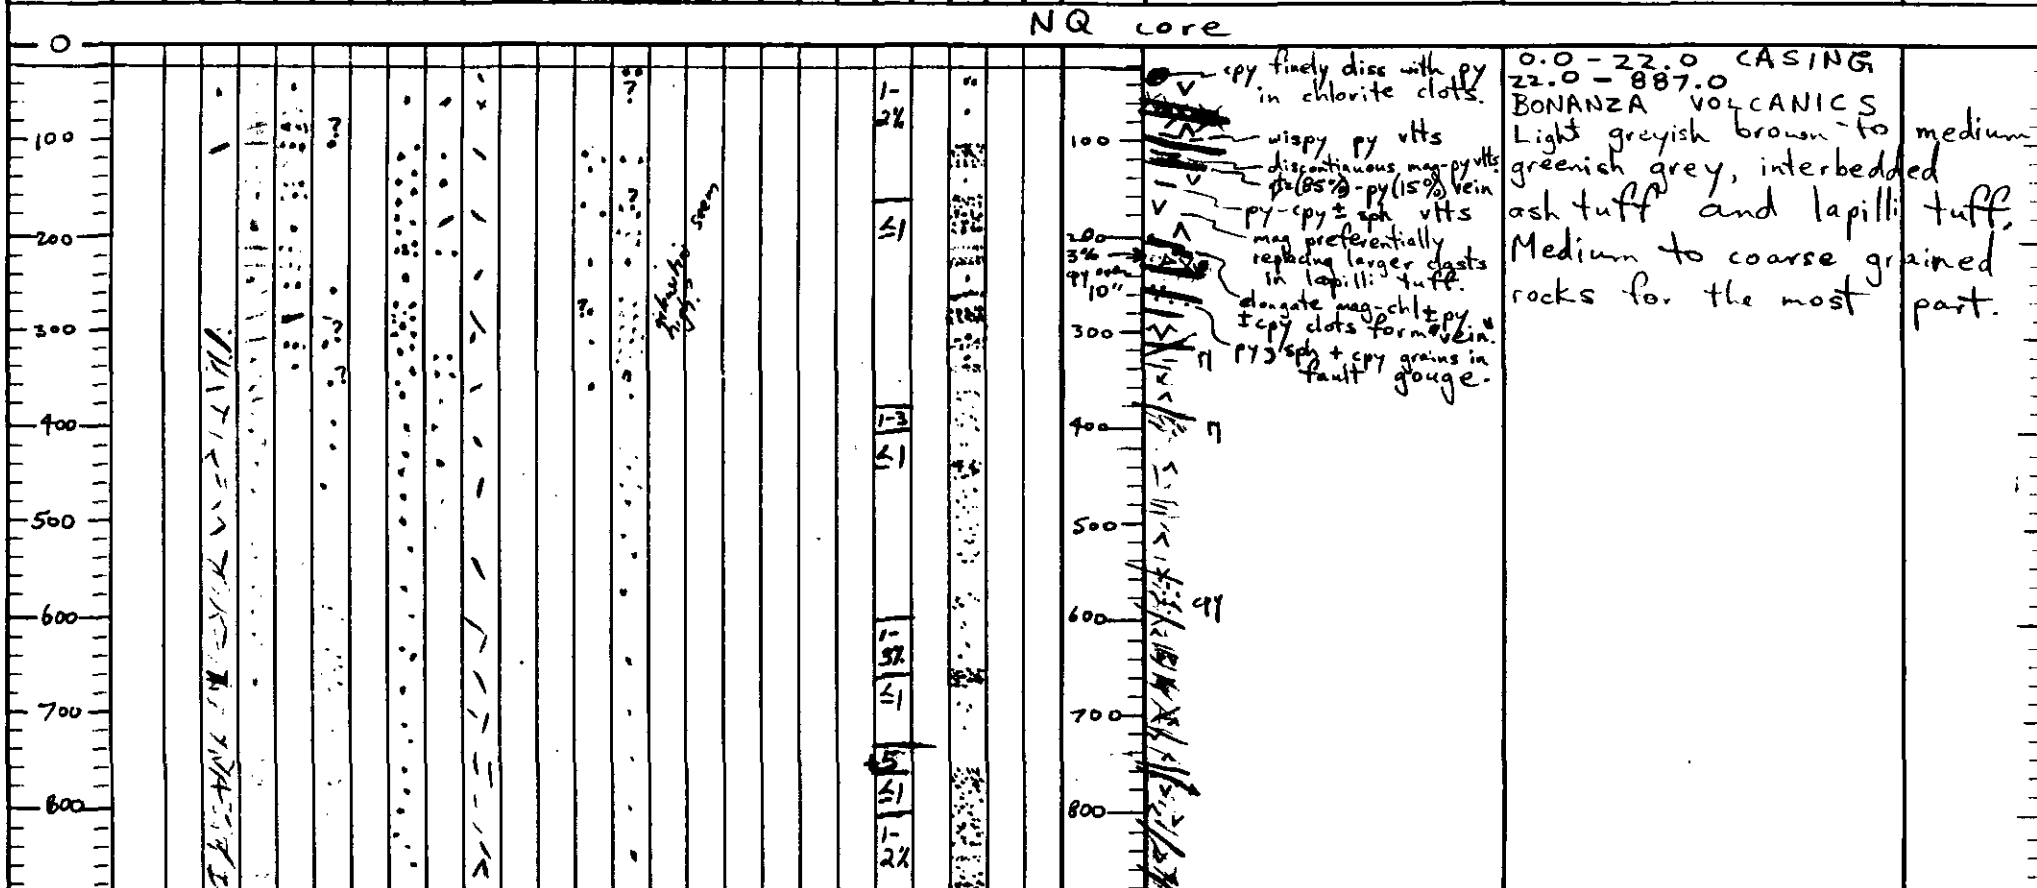 NQ core
0
100
200
300
400
500
600
700
800
?
?
?
?
?
?
1-
2%
≤1
1-3
≤1
1-
3%
≤1
5
≤1
1-
2%
100
200
3%
10"
300
400
500
600
700
800
cpy finely diss with py
in chlorite clots.
wispy py vlts
discontinuous mag-py vlts.
qtz (85%)-py (15%) vein
py-cpy ± sph vlts
mag preferentially
replacing larger clasts
in lapilli tuff.
elongate mag-chl ± py
± cpy clots form vein.
py, sph + cpy grains in
fault gouge.
0.0 - 22.0 CASING
22.0 - 887.0
BONANZA VOLCANICS
Light greyish brown to medium
greenish grey, interbedded
ash tuff and lapilli tuff.
Medium to coarse grained
rocks for the most part.